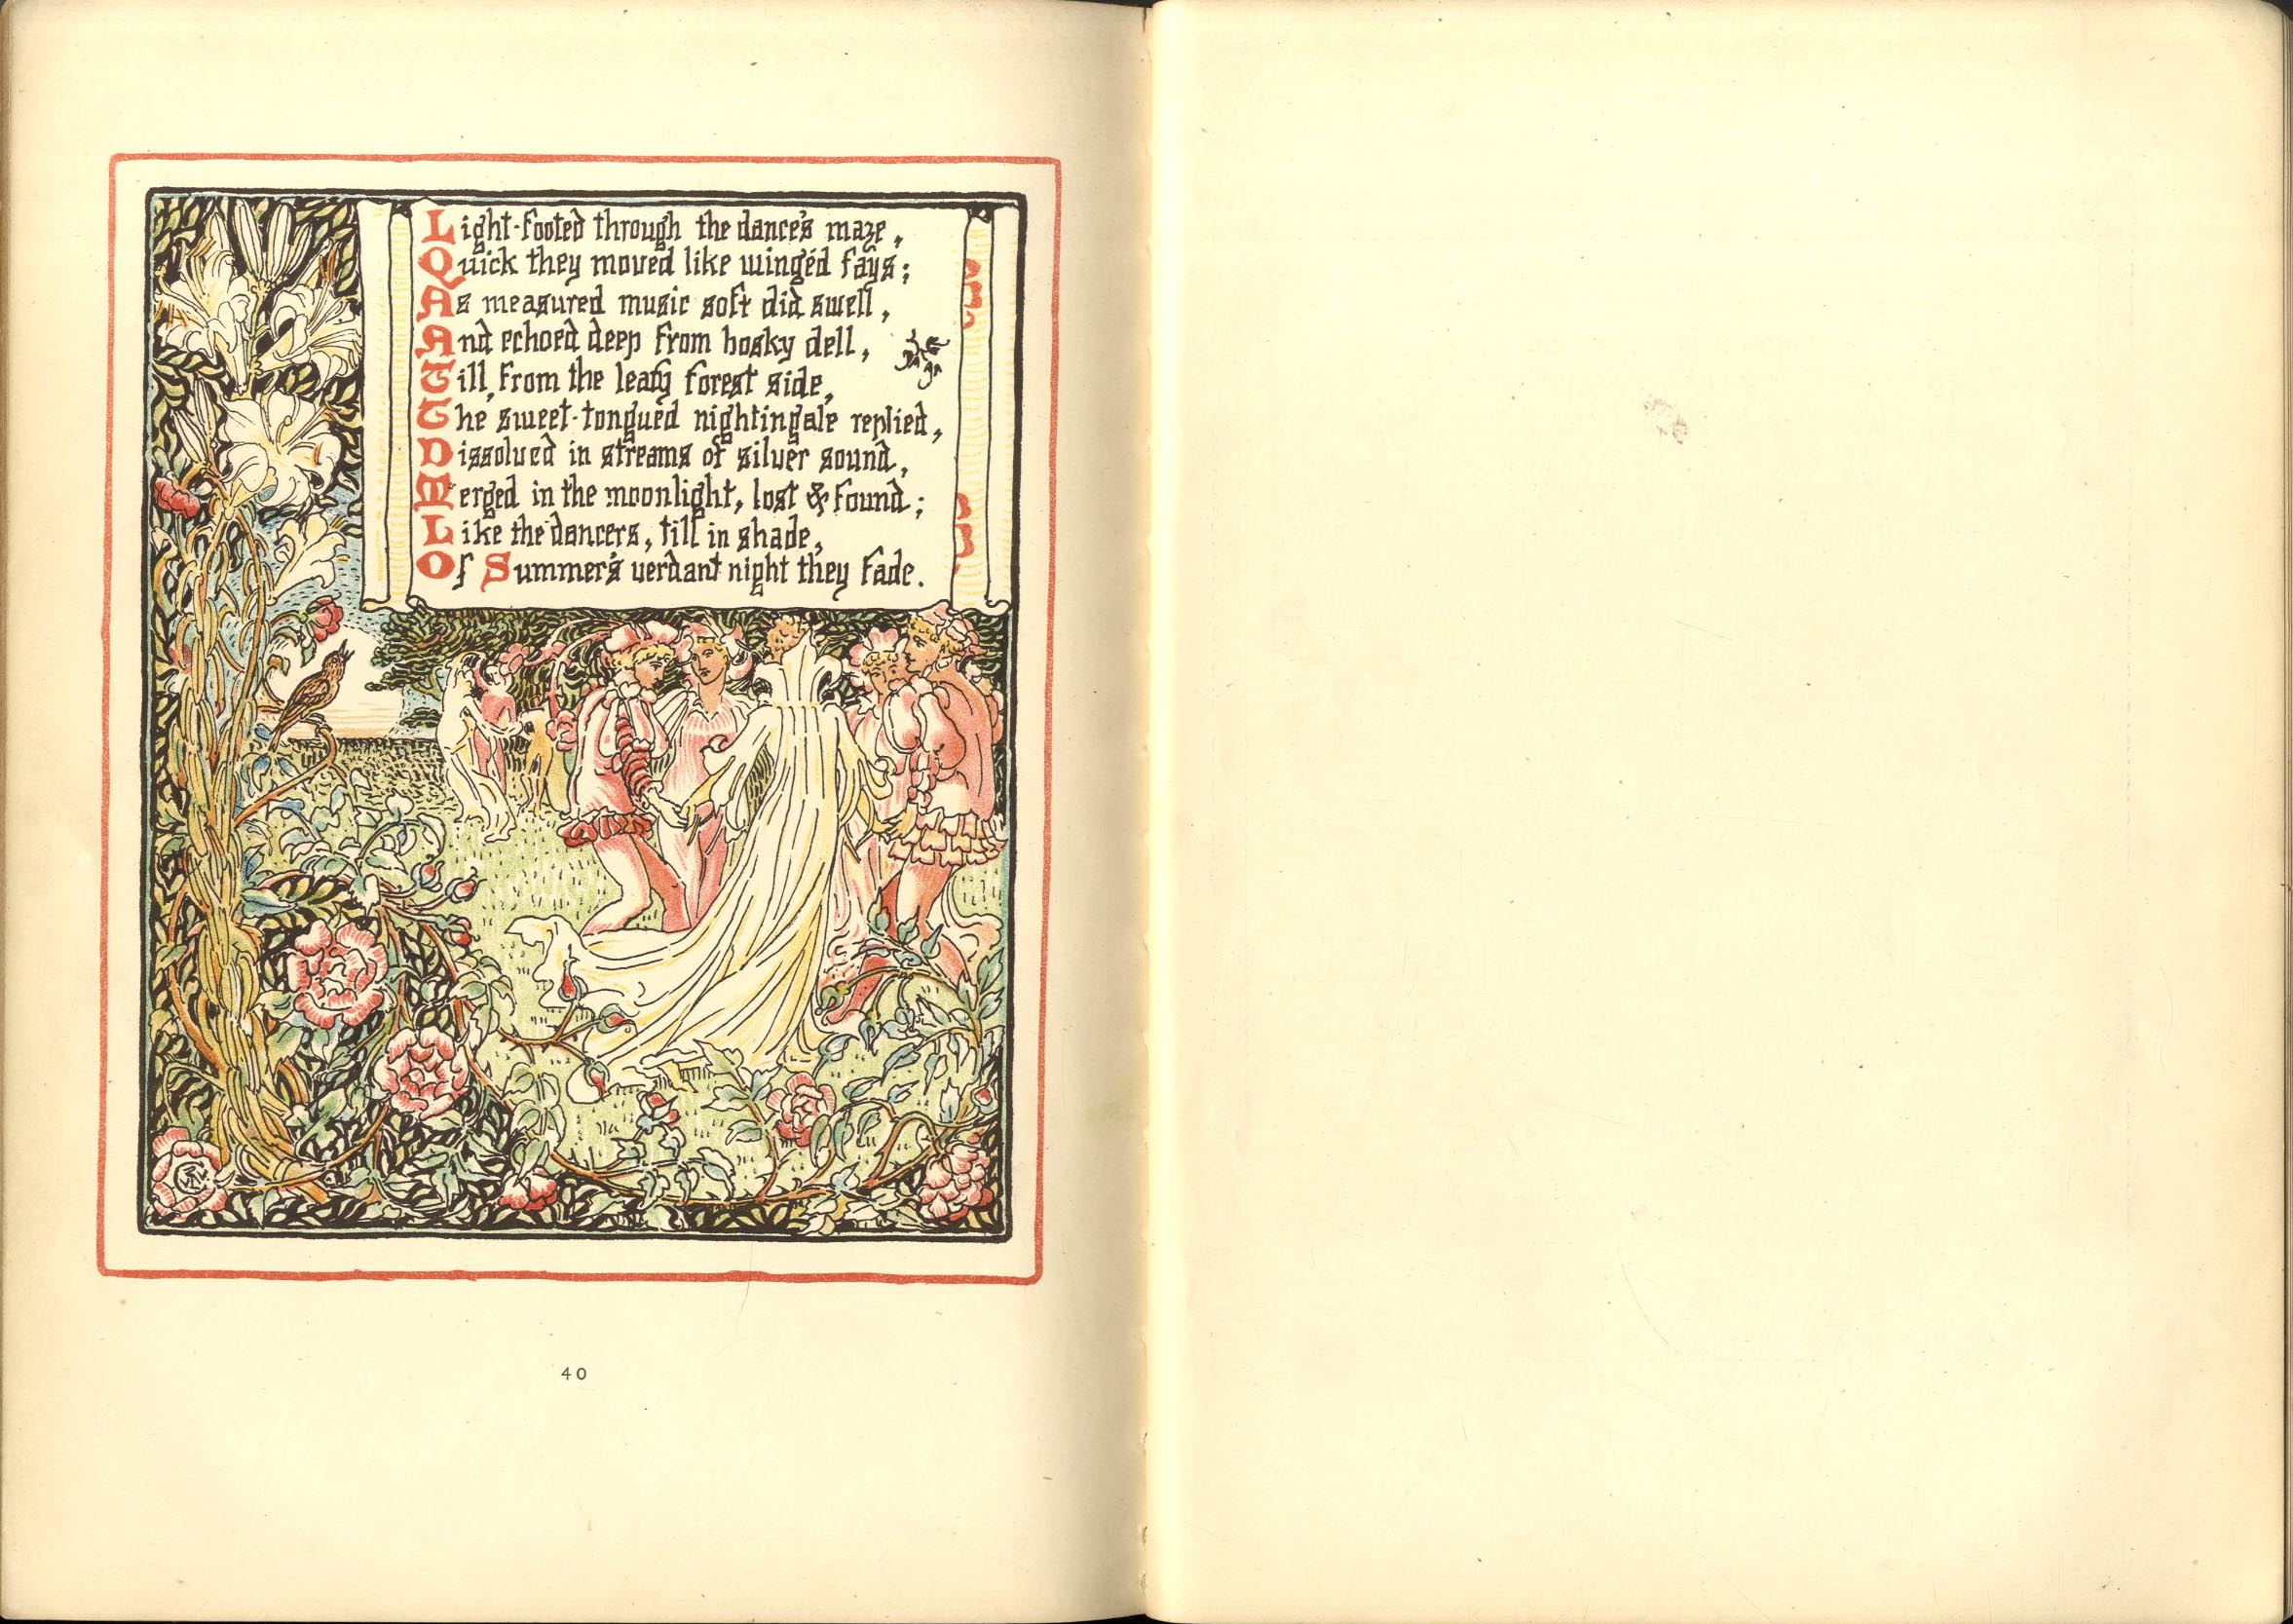 Light-footed through the dance's maze,
Quick they moved like wingéd fays;
As measured music soft did swell,
And echoed deep from bosky dell,
Till, from the leafy forest side,
The sweet-tongued nightingale replied,
Dissolved in streams of silver sound,
Merged in the moonlight, lost & found;
Like the dancers, till in shade,
Of Summer's verdant night they fade.
40